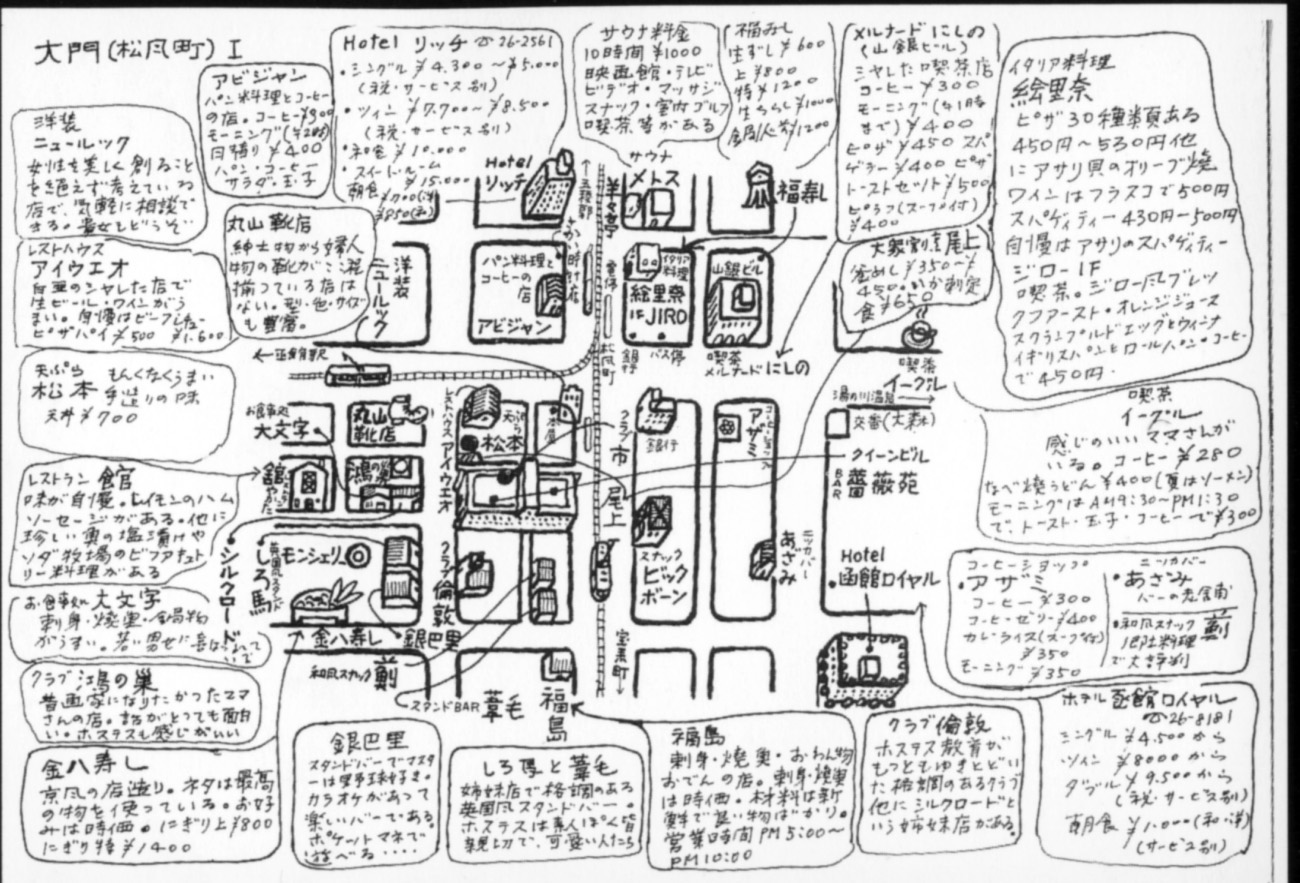 大門(松風町) I
アビジャン
パン料理とコーヒー
の店。コーヒー¥300
モーニング(
日替り ¥400
パン・コーヒー
サラダ・玉子
Hotel リッチ ☎26-2561
・シングル ¥4.300〜¥5.000
(税・サービス別)
・ツイン ¥7.700〜¥8.500
(税・サービス別)
・和室 ¥10.000
・スイートルーム
¥15.000
朝食 ¥700(洋)
¥850(和)
サウナ料金
10時間 ¥1000
映画館・テレビ
ビデオ・マッサジ
スナック・室内ゴルフ
喫茶等がある
福寿し
生ずし ¥600
上 ¥800
特 ¥1200
生ちらし ¥1000
¥1200
メルナードにしの
(山銀ビル)
シャレた喫茶店
コーヒー ¥300
モーニング(11時
まで) ¥400
ピザ ¥450 スパ
ゲテー ¥400 ピザ
トーストセット ¥500
ピラフ(スープ付)
¥400
イタリア料理
絵里奈
ピザ30種類ある
450円〜530円他
にアサリ貝のオリーブ焼
ワインはフラスコで500円
スパゲィティー430円〜500円
自慢はアサリのスパゲィティー
ジロー1F
喫茶。ジロー風ブレッ
クファースト・オレンジジュース
スクランブルドエッグとウィンナ
イギリスパンとロールパン・コーヒー
で450円.
洋装
ニュールック
女性を美しく創ること
を絶えず考えている
店で、気軽に相談で
きる。貴女もどうぞ
丸山靴店
紳士物から婦人
物の靴がここ程
揃っている店は
ない。型・色・サイズ
も豊富。
レストハウス
アイウエオ
白亜のシャレた店で
生ビール・ワインがう
まい。自慢はビーフシチュー
ピザパイ ¥500 ¥1.600
天ぷら
松本 もんくなくうまい
手造りの味
天丼 ¥700
レストラン 館
味が自慢。レイモンのハム
ソーセージがある。他に
珍しい
ソダ牧場のビフアチュト
リー料理がある
お食事処 大文字
刺身・焼魚・鍋物
がうまい。
クラブ 鴻の巣
昔画家になりたかったママ
さんの店。話がとっても面白
い。ホステスも感じがいい
金八寿し
京風の店造り。ネタは最高
の物を使っている。お好
みは時価。にぎり上¥800
にぎり特 ¥1400
大衆割烹 尾上
釜めし ¥350〜¥
450.いか刺定
食 ¥650
喫茶
イーグル
感じのいいママさんが
いる。コーヒー ¥280
なべ焼うどん ¥400 (夏はソーメン)
モーニングはAM9:30〜PM1:30
で、トースト・玉子・コーヒーで¥300
コーヒーショップ
・アザミ
コーヒー ¥300
コーヒーゼリー ¥400
カレーライス(スープ付)
¥350
モーニング ¥350
ニッカバー
・あざみ
バーの老舗
・和風スナック 蘭
郷土料理
で大評判
ホテル 函館ロイヤル
☎26-8181
シングル ¥4.500から
ツイン ¥8000から
ダブル ¥9.500から
(税・サービス別)
朝食 ¥1.000(和・洋)
(サービス別)
Hotel
リッチ
サウナ
メトス
福寿し
←五稜郭
さかい時計店
電停
洋装
ニュールック
パン料理と
コーヒーの
店
アビジャン
イタリア
料理
絵里奈
1F JIRO
山銀ビル
銀行
バス停
喫茶
メルナードにしの
松風町
喫茶
イーグル
←函館駅
湯の川温泉
交番(大森)
お食事処
大文字
丸山
靴店
レストハウス アイウエオ
天ぷら
松本
クラブ 市
銀行
コーヒーショップ
アザミ
クイーンビル
BAR 薔薇苑
館
やかた
鴻の巣
尾上
シルクロード
しろ馬
英国風スタンド
モンシェリー
クラブ 倫敦
スナック
ビック
ボーン
ニッカバー
あざみ
Hotel
函館ロイヤル
金八寿し
銀巴里
和風スナック
スタンドBAR 葦毛
福島
宝来町
銀巴里
スタンドバーでマスタ
ーは野球好き。
カラオケがあって
楽しいバーである。
ポケットマネで
遊べる・・・・
しろ馬と葦毛
姉妹店で格調のある
英国風スタンドバー。
ホステスは素人ぽく皆
親切で、可愛い人たち
福島
刺身・焼魚・おわん物
おでんの店。刺身・焼魚
は時価。材料は新
鮮で良い物ばかり。
営業時間 PM5:00〜
PM10:00
クラブ 倫敦
ホステス教育が
もっともゆきとどい
た格調のあるクラブ
他にシルクロードと
いう姉妹店がある。